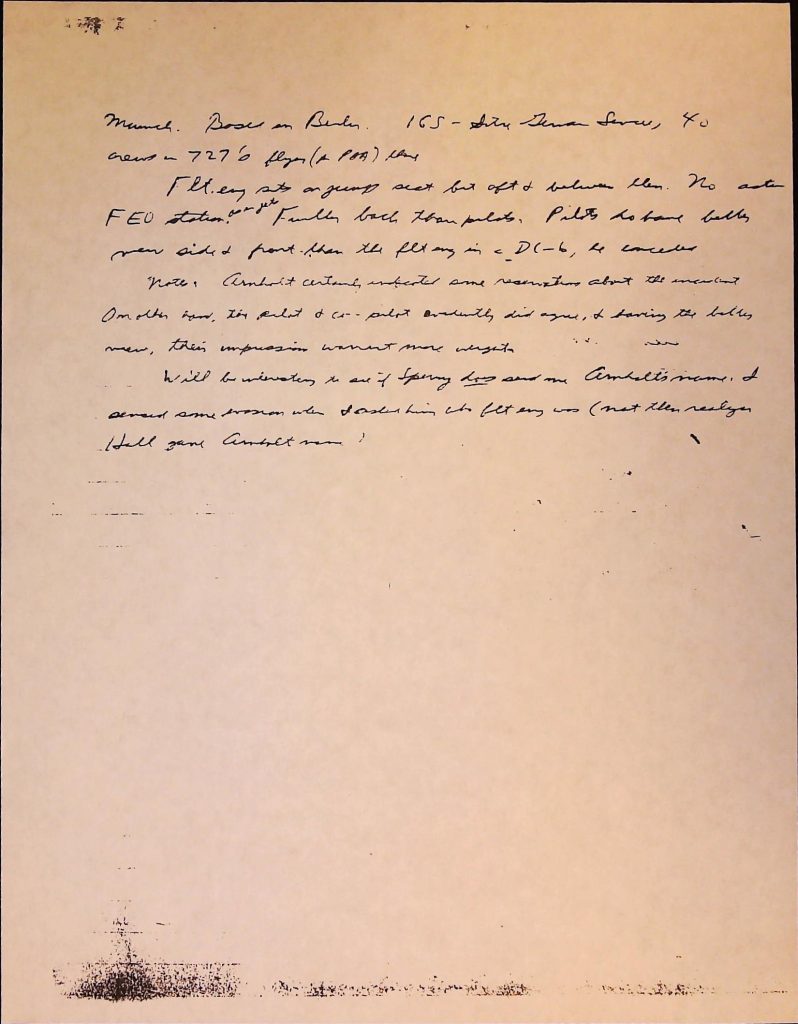 Munich. Based in Berlin. IGS - Intra German Service, 40
crews in 727's flying (in PAA) there
Flt. eng sits on jump seat but aft & between them. No
FEO station as on jet Further back than pilots. Pilots do have better
view side & front than the flt eng in a DC-6, he conceded
Note: Arnholt certainly indicated some reservations about the incident
On other hand, the pilot & co-pilot evidently did agree, & having the better
view, their impression warrant more weight
Will be interesting to see if Sperry has send me Arnholt's name. I
sensed some evasion when I asked him who flt eng was (not then realizing
Hall gave Arnholt name